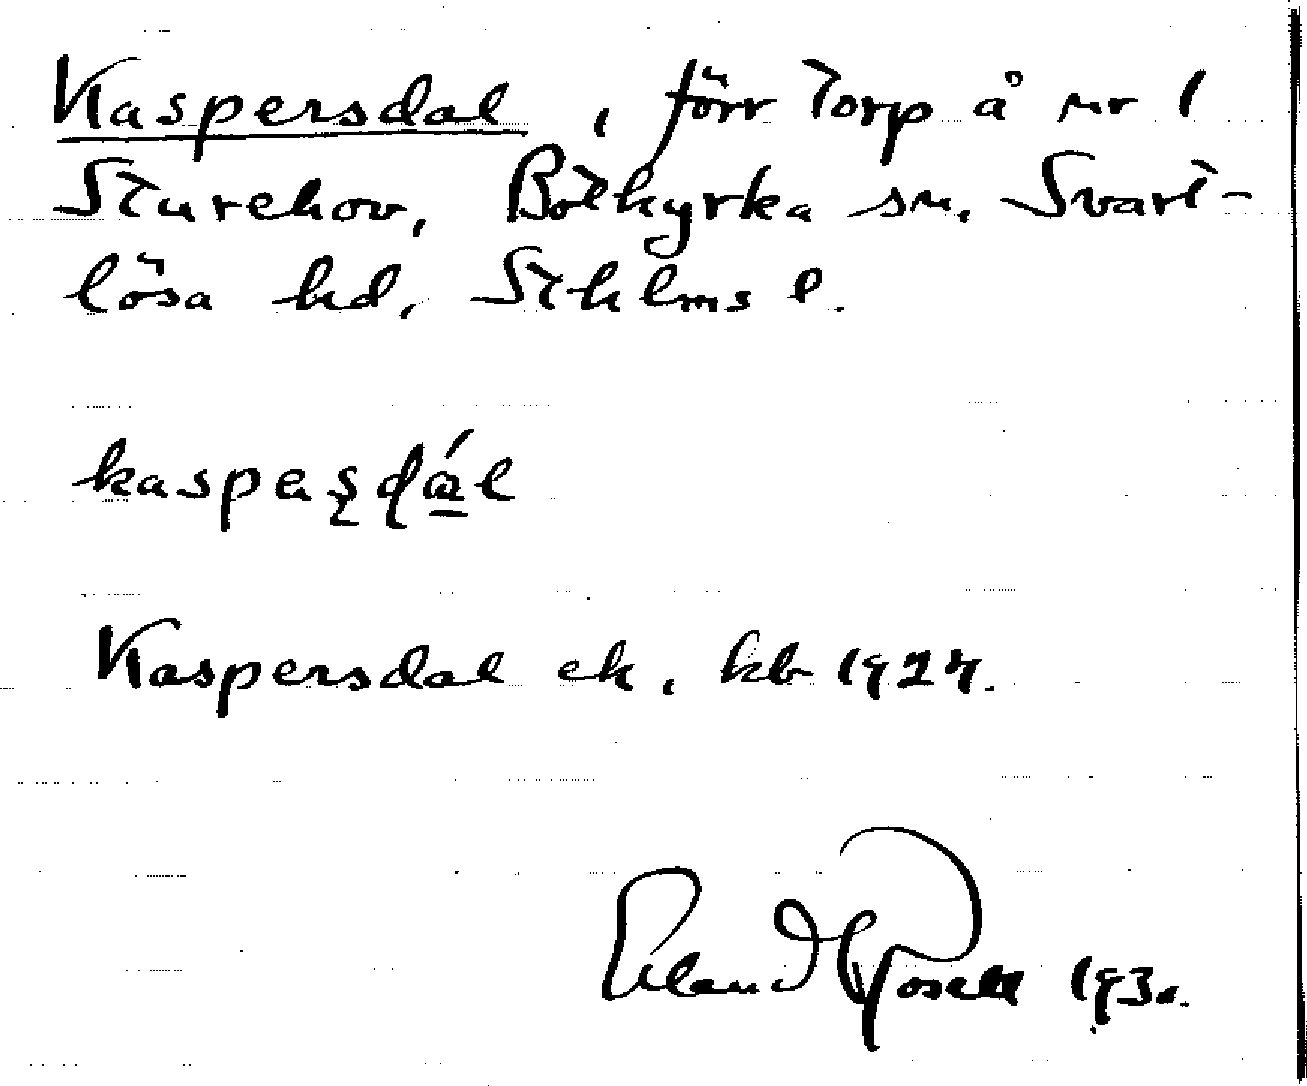 Kaspersdal, förr Torp å nr 1
Sturehov, Botkyrka sn, Svart-
lösa hd, Sthlms l.
kaspaşdál
Kaspersdal ek. kb 1927.
Erland Rosell 1930.